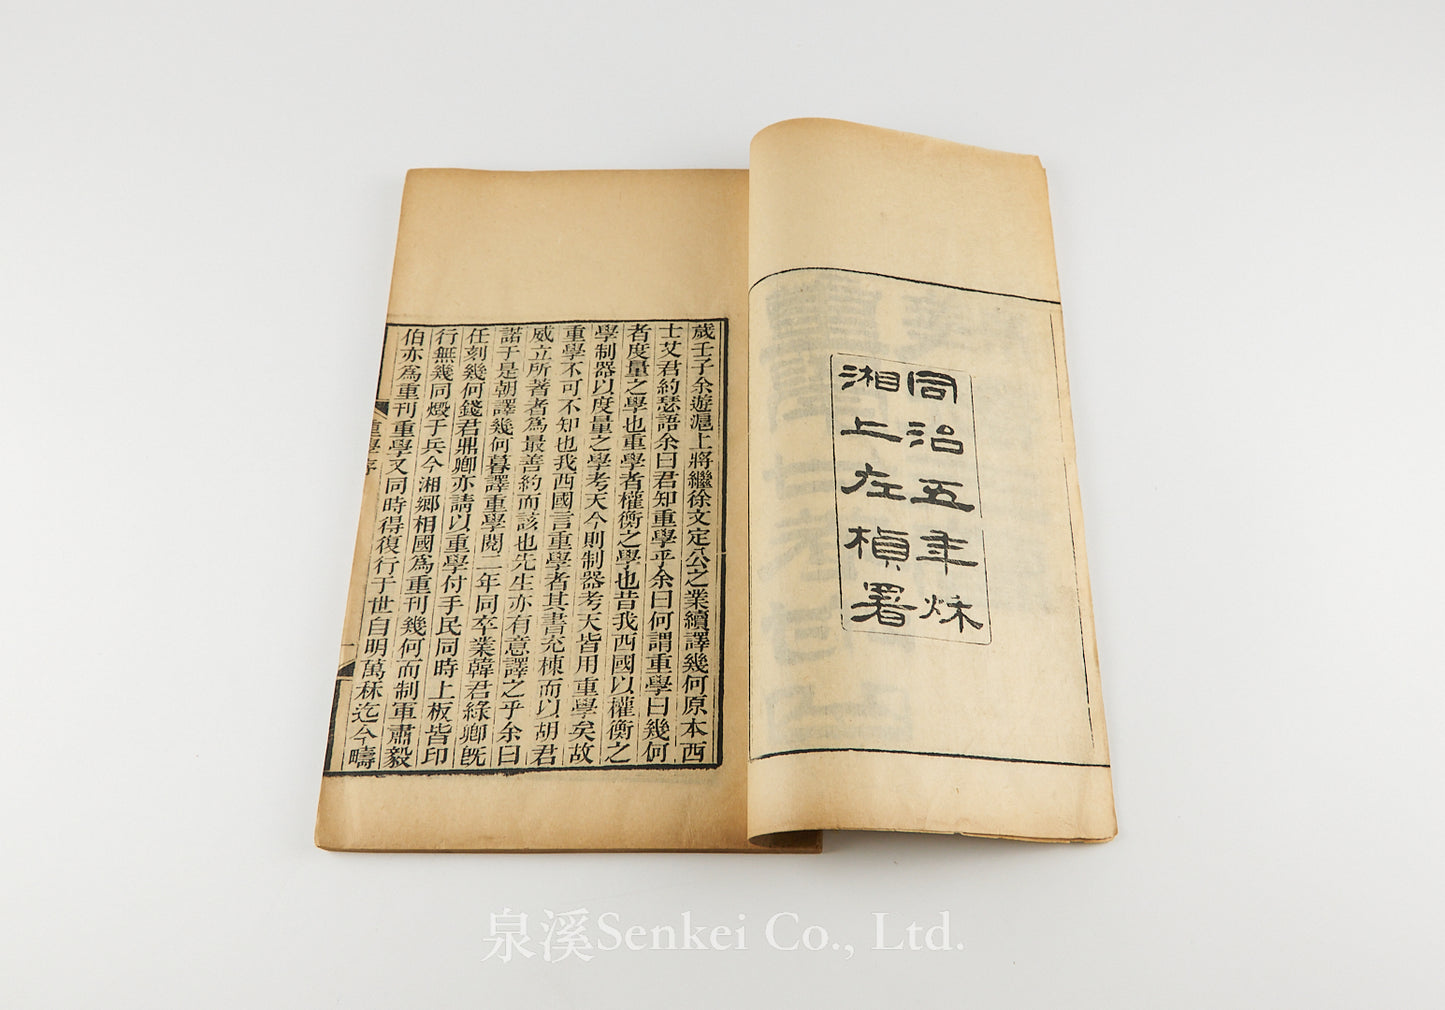 同治五年烁
湘上左楨署
歲壬子余遊滬上將繼徐文定公之業續譯幾何原本西
士艾君約瑟語余曰君知重學乎余曰何謂重學曰幾何
者度量之學也重學者權衡之學也昔我西國以權衡之
學制器以度量之學考天今則制器考天皆用重學矣故
重學不可不知也我西國言重學者其書充棟而以胡君
威立所著者爲最善約而該也先生亦有意譯之乎余曰
諾于是朝譯幾何暮譯重學閱二年同卒業韓君綠卿旣
任刻幾何錢君鼎卿亦請以重學付手民同時上板皆印
行無幾同燬于兵今湘鄉相國爲重刊幾何而制軍肅毅
伯亦爲重刊重學又同時得復行于世自明萬秝迄今疇
重學序
一
泉溪Senkei Co., Ltd.